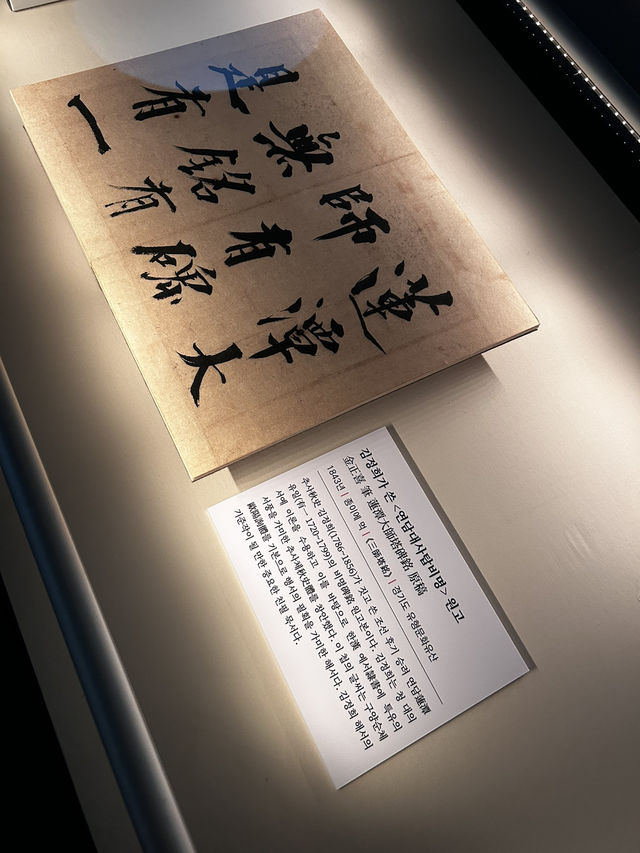 蓮潭大
師有碑
無銘有
是有一
김정희가 쓴 <연담대사탑비명> 원고
金正喜 筆 蓮潭大師塔碑銘 原稿
1843년 | 종이에 먹 | 《三師塔銘》 | 경기도 유형문화유산
추사秋史 김정희(1786~1856)가 짓고 쓴 조선 후기 승려 연담蓮潭
유일(有一 1720~1799)의 비명碑銘 원고본이다. 김정희는 청 대의
서예 이론을 수용하고 이를 바탕으로 한漢 예서隸書에 특유의
서풍을 가미한 추사체秋史體를 창안했다. 이 첩의 글씨는 구양순체
歐陽詢體를 기본으로 예서의 필획을 가미한 해서다. 김정희 해서의
기준작이 될 만한 중요한 친필 묵서다.